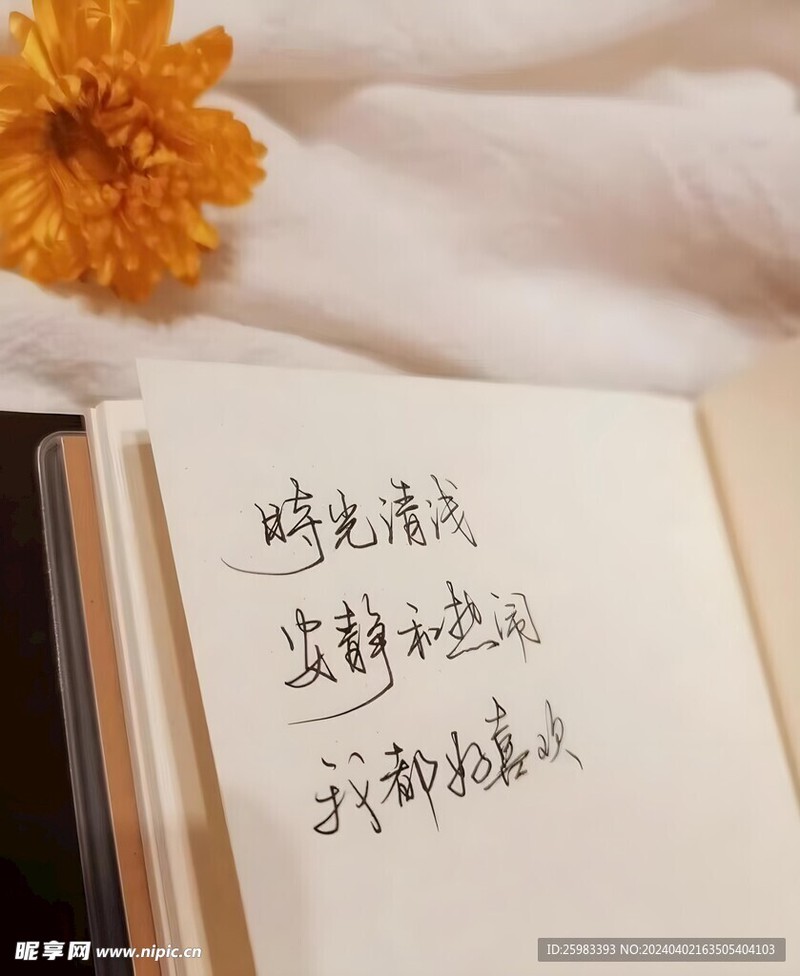 時光清浅
安静和热闹
我都好喜欢
昵享网 www.nipic.cn
ID:25983393 NO:20240402163505404103